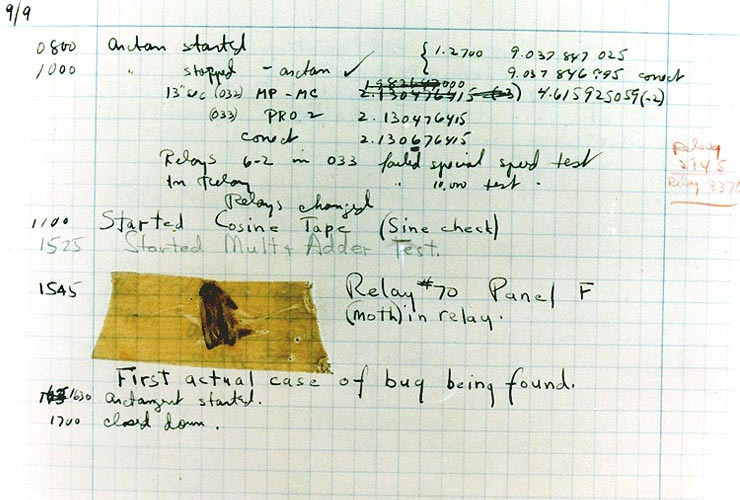 9/9
0800 arctan started { 1.2700 9.037 847 025
1000 " stopped - arctan ✓ 9.037 846 995 correct
13"uc (032) MP - MC 2.130476415 4.615925059(-2)
(033) PRO 2 2.130476415
correct 2.130676415
Relays 6-2 in 033 failed special speed test
In Relay " 10,000 test .
Relays changed
Relay
2145
Relay 3370
1100 Started Cosine Tape (Sine check)
1525 Started Mult + Adder Test.
1545 Relay #70 Panel F
(moth) in relay.
First actual case of bug being found.
1630 arctangent started.
1700 closed down .